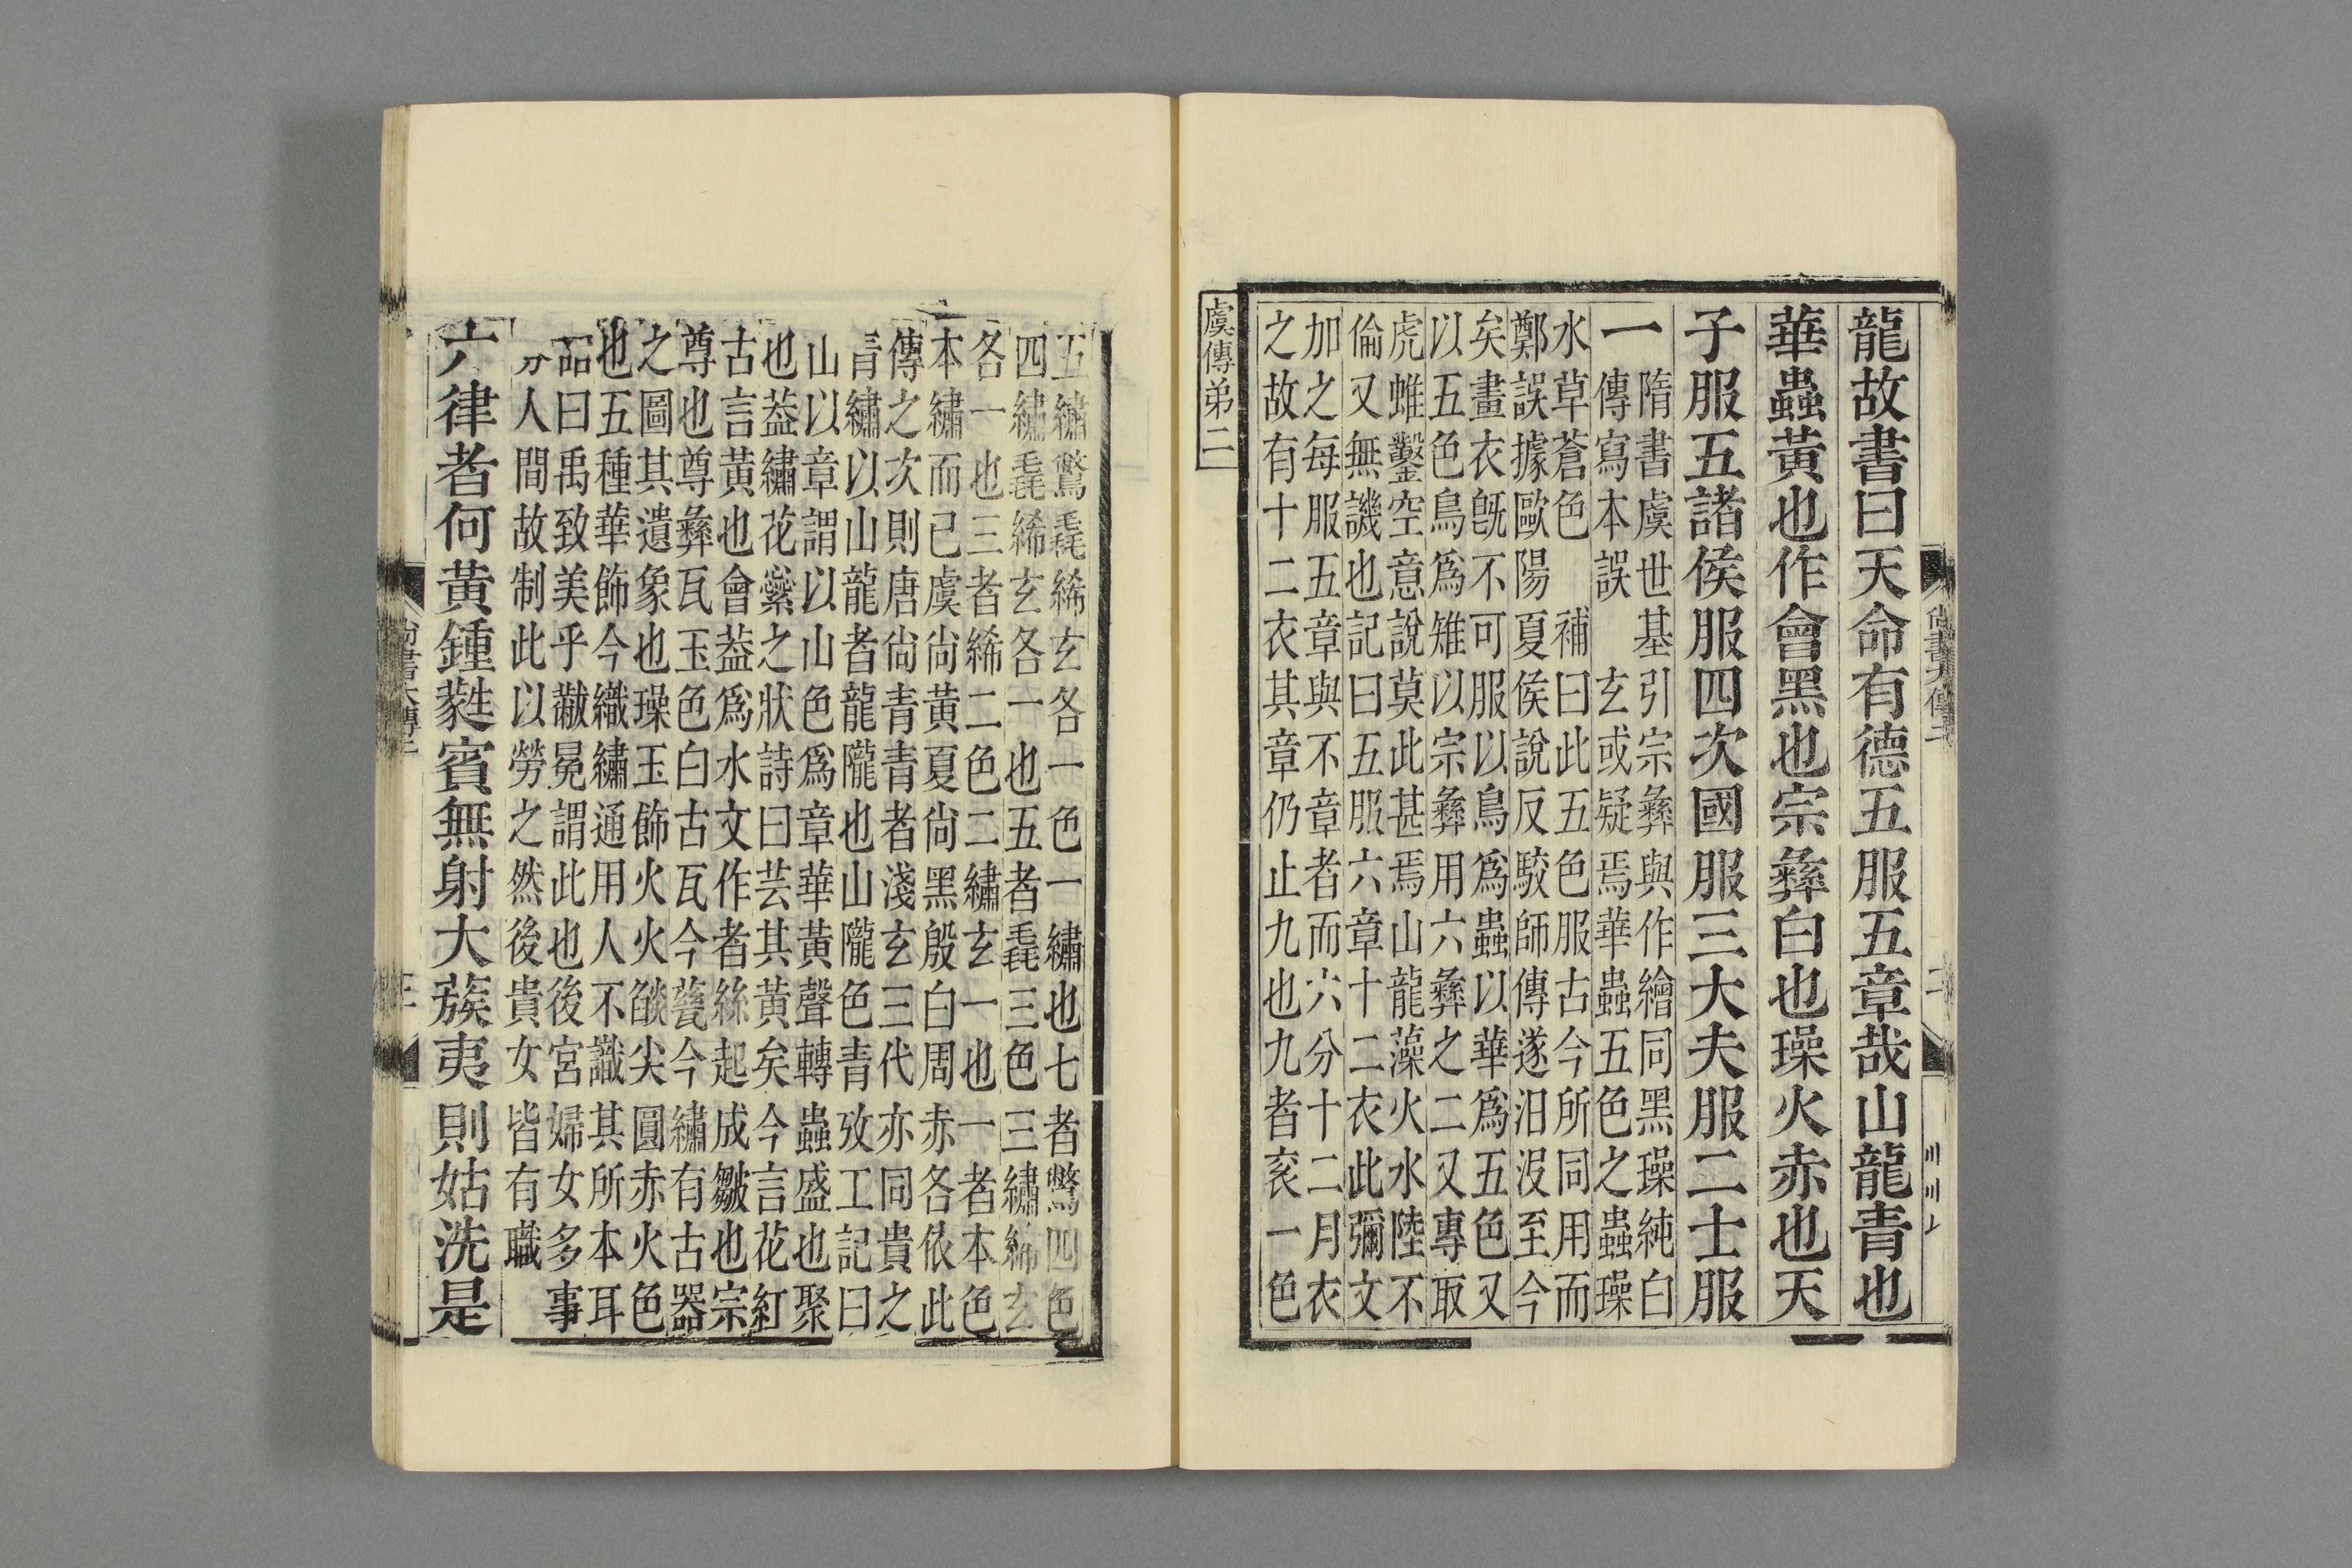 龍故書曰天命有德五服五章哉山龍青也
華蟲黃也作會黑也宗彝白也璪火赤也天
子服五諸侯服四次國服三大夫服二士服
一
隋書虞世基引宗彝與作繪同黑璪純白
傳寫本誤 玄或疑焉華蟲五色之蟲璪
水草蒼色 補曰此五色服古今所同用而
鄭誤據歐陽夏侯說反駮師傳遂汨沒至今
矣畫衣旣不可服以鳥爲蟲以華爲五色又
以五色鳥爲雉以宗彝用六彝之二又專取
虎蜼鑿空意說莫此甚焉山龍藻火水陸不
倫又無譏也記曰五服六章十二衣此彌文
加之每服五章與不章者而六分十二月衣
之故有十二衣其章仍止九也九者衮一色
虞傳弟二
五繡鷩毳絺玄各一色一繡也七者鷩四色
四繡毳絺玄各一也五者毳三色三繡絺玄
各一也三者絺二色二繡玄一也一者本色
本繡而已虞尙黃夏尙黑殷白周赤各依此
傳之次則唐尙青青者淺玄三代亦同貴之
青繡以山龍者龍隴也山隴色青攷工記曰
山以章謂以山色爲章華黃聲轉蟲盛也聚
也葢繡花欒之狀詩曰芸其黃矣今言花紅
古言黃也會葢爲水文作者絲起成皺也宗
尊也尊彝瓦玉色白古瓦今甆今繡有古器
之圖其遺象也璪玉飾火火燄尖圓赤火色
也五種華飾今織繡通用人不識其所本耳
品曰禹致美乎黻冕謂此也後宮婦女多事
分人間故制此以勞之然後貴女皆有職
六律者何黃鍾蕤賓無射大蔟夷則姑洗是